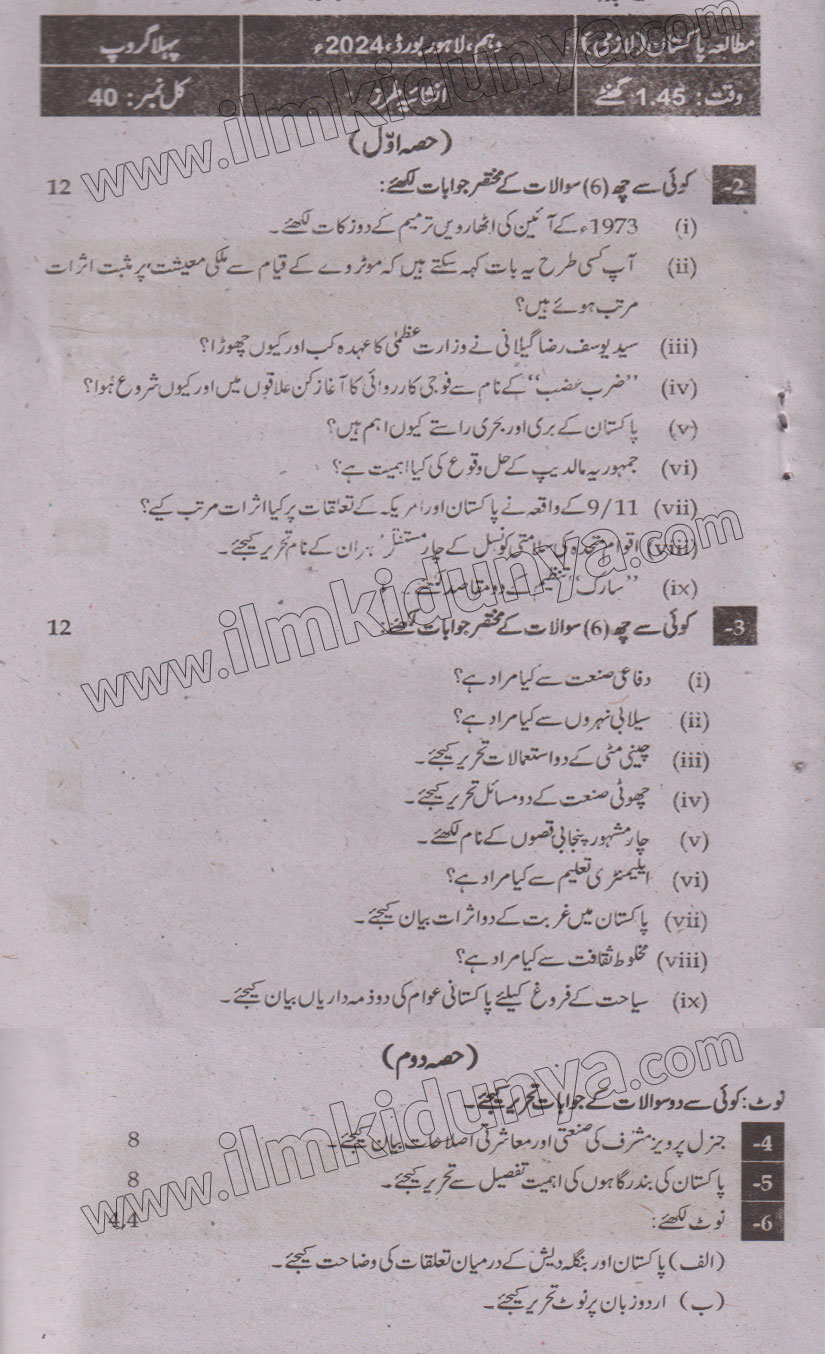 مطالعہ پاکستان (لازمی) دہم، لاہور بورڈ، 2024ء پہلا گروپ
وقت: 1.45 گھنٹے انشائیہ طرز کل نمبر: 40
(حصہ اوّل)
2- کوئی سے چھ (6) سوالات کے مختصر جوابات لکھئے: 12
(i) 1973ء کے آئین کی اٹھارویں ترمیم کے دو نکات لکھئے۔
(ii) آپ کسی طرح یہ بات کہہ سکتے ہیں کہ موٹروے کے قیام سے ملکی معیشت پر مثبت اثرات
مرتب ہوئے ہیں؟
(iii) سید یوسف رضا گیلانی نے وزارت عظمیٰ کا عہدہ کب اور کیوں چھوڑا؟
(iv) ”ضرب عضب“ کے نام سے فوجی کارروائی کا آغاز کن علاقوں میں اور کیوں شروع ہُوا؟
(v) پاکستان کے بری اور بحری راستے کیوں اہم ہیں؟
(vi) جمہوریہ مالدیپ کے حل وقوع کی کیا اہمیت ہے؟
(vii) 9/11 کے واقعہ نے پاکستان اور امریکہ کے تعلقات پر کیا اثرات مرتب کیے؟
(viii) اقوام متحدہ کی سلامتی کونسل کے چار مستقل کے نام تحریر کیجئے۔
(ix) ”سارک“ تنظیم کے دو مقاصد
3- کوئی سے چھ (6) سوالات کے مختصر جوابات لکھئے: 12
(i) دفاعی صنعت سے کیا مراد ہے؟
(ii) سیلابی نہروں سے کیا مراد ہے؟
(iii) چینی مٹی کے دو استعمالات تحریر کیجئے۔
(iv) چھوٹی صنعت کے دو مسائل تحریر کیجئے۔
(v) چار مشہور پنجابی قصوں کے نام لکھئے۔
(vi) ایلیمنٹری تعلیم سے کیا مراد ہے؟
(vii) پاکستان میں غربت کے دو اثرات بیان کیجئے۔
(viii) مخلوط ثقافت سے کیا مراد ہے؟
(ix) سیاحت کے فروغ کیلئے پاکستانی عوام کی دو ذمہ داریاں بیان کیجئے۔
(حصہ دوم)
نوٹ: کوئی سے دو سوالات کے جوابات تحریر کیجئے۔
4- جنرل پرویز مشرف کی صنعتی اور معاشرتی اصلاحات بیان کیجئے۔ 8
5- پاکستان کی بندرگاہوں کی اہمیت تفصیل سے تحریر کیجئے۔ 8
6- نوٹ لکھئے: 4,4
(الف) پاکستان اور بنگلہ دیش کے درمیان تعلقات کی وضاحت کیجئے۔
(ب) اردو زبان پر نوٹ تحریر کیجئے۔
www.ilmkidunya.com
www.ilmkidunya.com
www.ilmkidunya.com